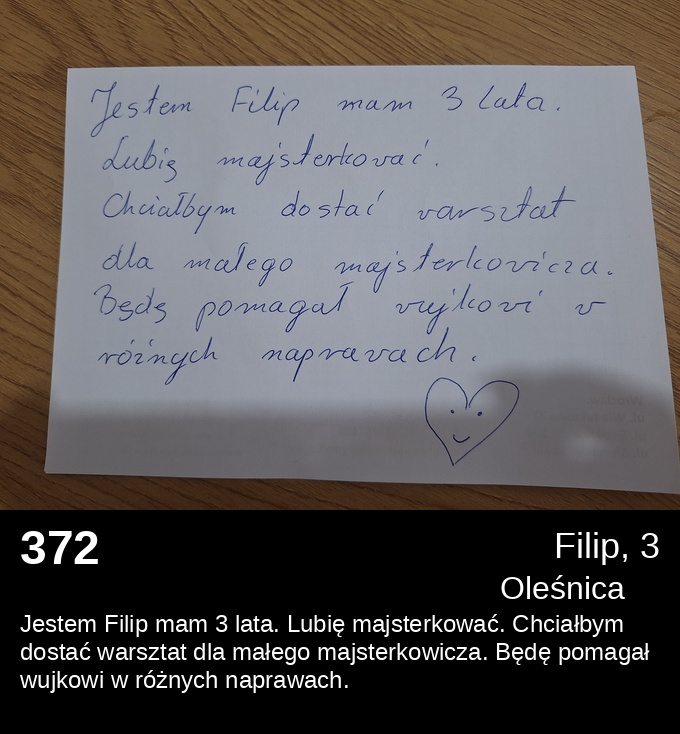 Jestem Filip mam 3 lata.
Lubię majsterkować.
Chciałbym dostać warsztat
dla małego majsterkowicza.
Będę pomagał wujkowi w
różnych naprawach.
372
Filip, 3
Oleśnica
Jestem Filip mam 3 lata. Lubię majsterkować. Chciałbym
dostać warsztat dla małego majsterkowicza. Będę pomagał
wujkowi w różnych naprawach.